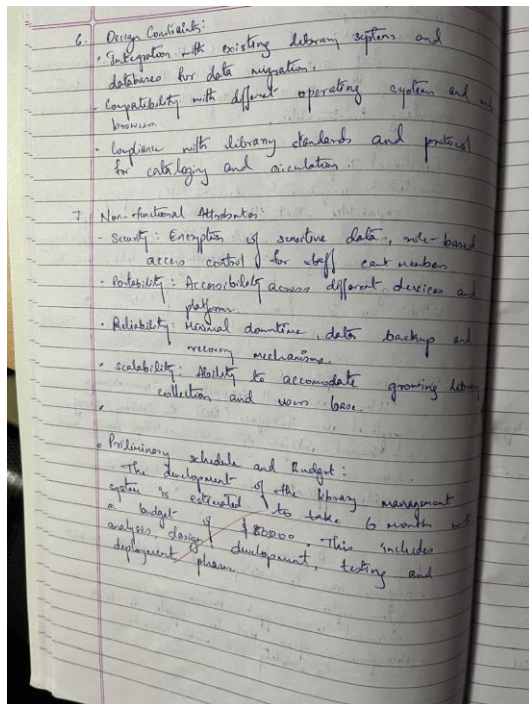 6. Design Constraints:
• Integration with existing library systems and
databases for data migration.
- Compatibility with different operating system and web
browsers.
• Compliance with library standards and protocol
for cataloging and circulation.
7. Non-functional Attributes:
- Security: Encryption of sensitive data, role-based
access control for staff and members
• Portability: Accessibility across different devices and
platforms.
• Reliability: Minimal downtime, data backup and
recovery mechanisms.
• Scalability: Ability to accomodate growing library
collection and users base.
• Priliminary schedule and Budget:
The development of the library management
system is estimated to take 6 months with
a budget of $80000. This includes
analysis, design, development, testing and
deployment phases.